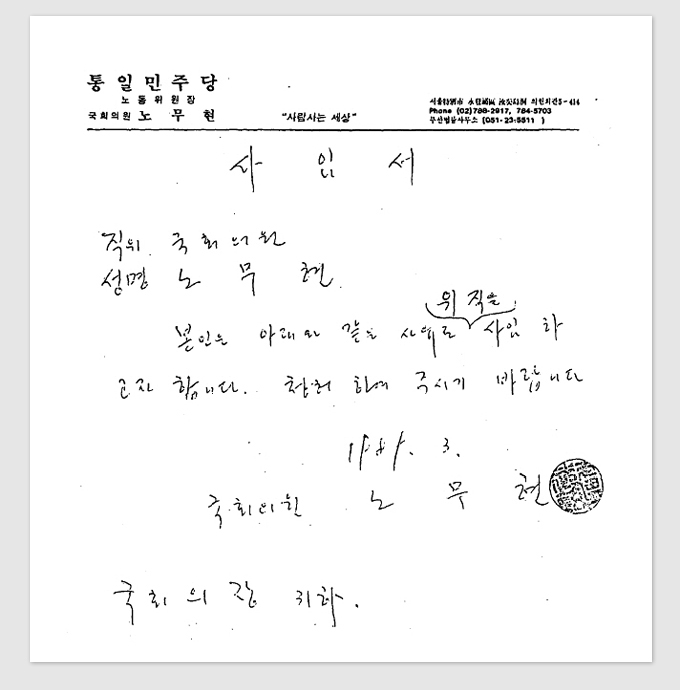 통일민주당
노동위원장
국회의원 노무현 "사람사는 세상"
서울特別市 永登浦區 汝矣島洞 의원회관5-414
Phone (02)788-2917, 784-5703
부산법률사무소 (051-23-5511 )
사 임 서
직위 국회의원
성명 노 무 현
위 직을
본인은 아래와 같은 사유로 사임 하
고자 합니다. 허 하여 주시기 바랍니다
3.
국회의원 노 무 현
국회의장 귀하.